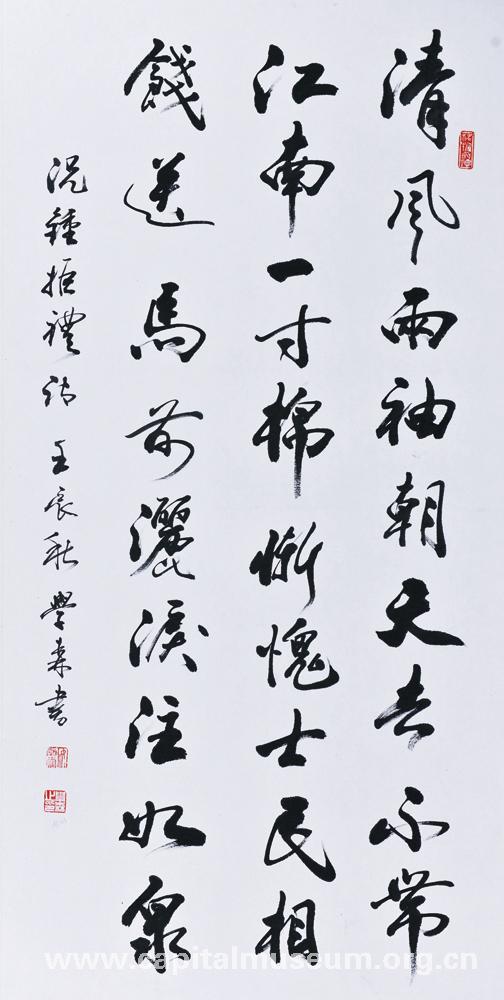 清風兩袖朝天去不帶
江南一寸棉慚愧士民相
餞送馬前灑淚注如泉
況鍾拒禮詩 壬辰秋 學森書
www.capitalmuseum.org.cn